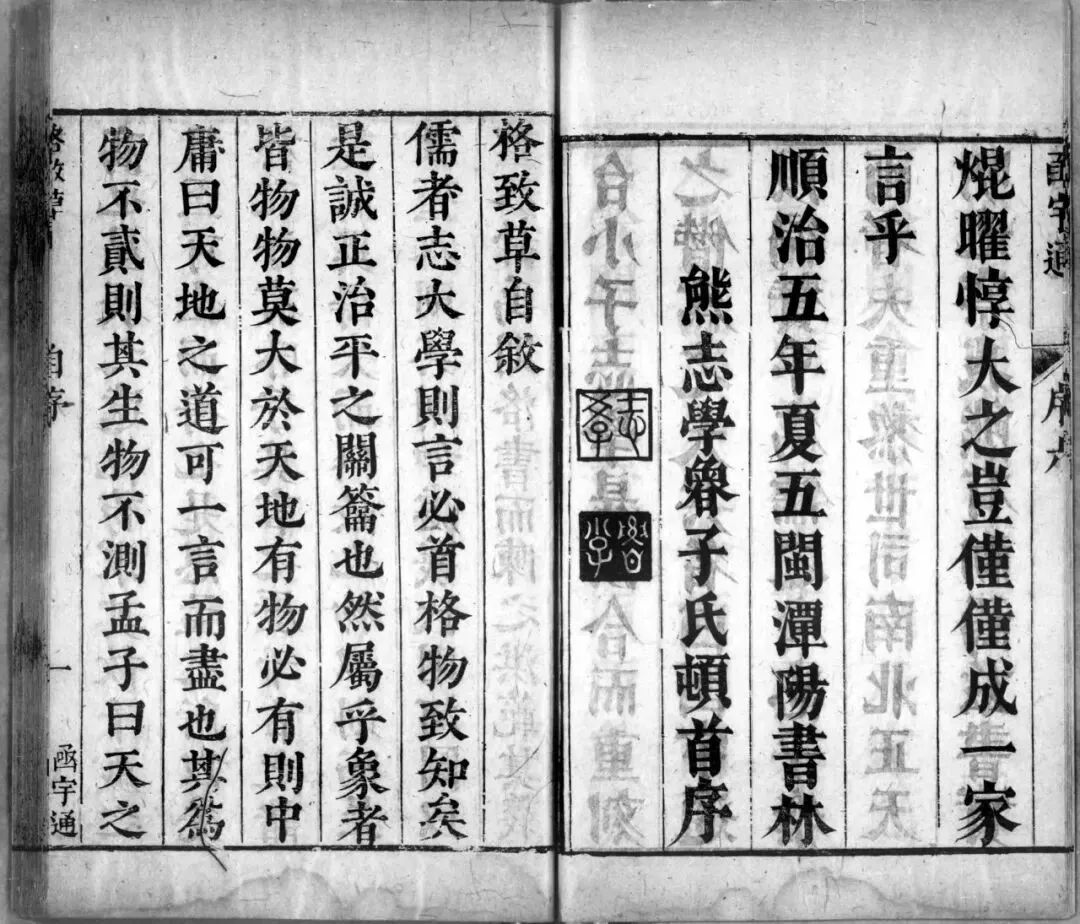 函宇通
序六
焜曜惇大之豈僅僅成一家
言乎
順治五年夏五閩潭陽書林
熊志學魯子氏頓首序
志學
魯子
格致草自敘
儒者志大學則言必首格物致知矣
是誠正治平之關籥也然屬乎象者
皆物物莫大於天地有物必有則中
庸曰天地之道可一言而盡也其為
物不貳則其生物不測孟子曰天之
格致草
自序
一
函宇通